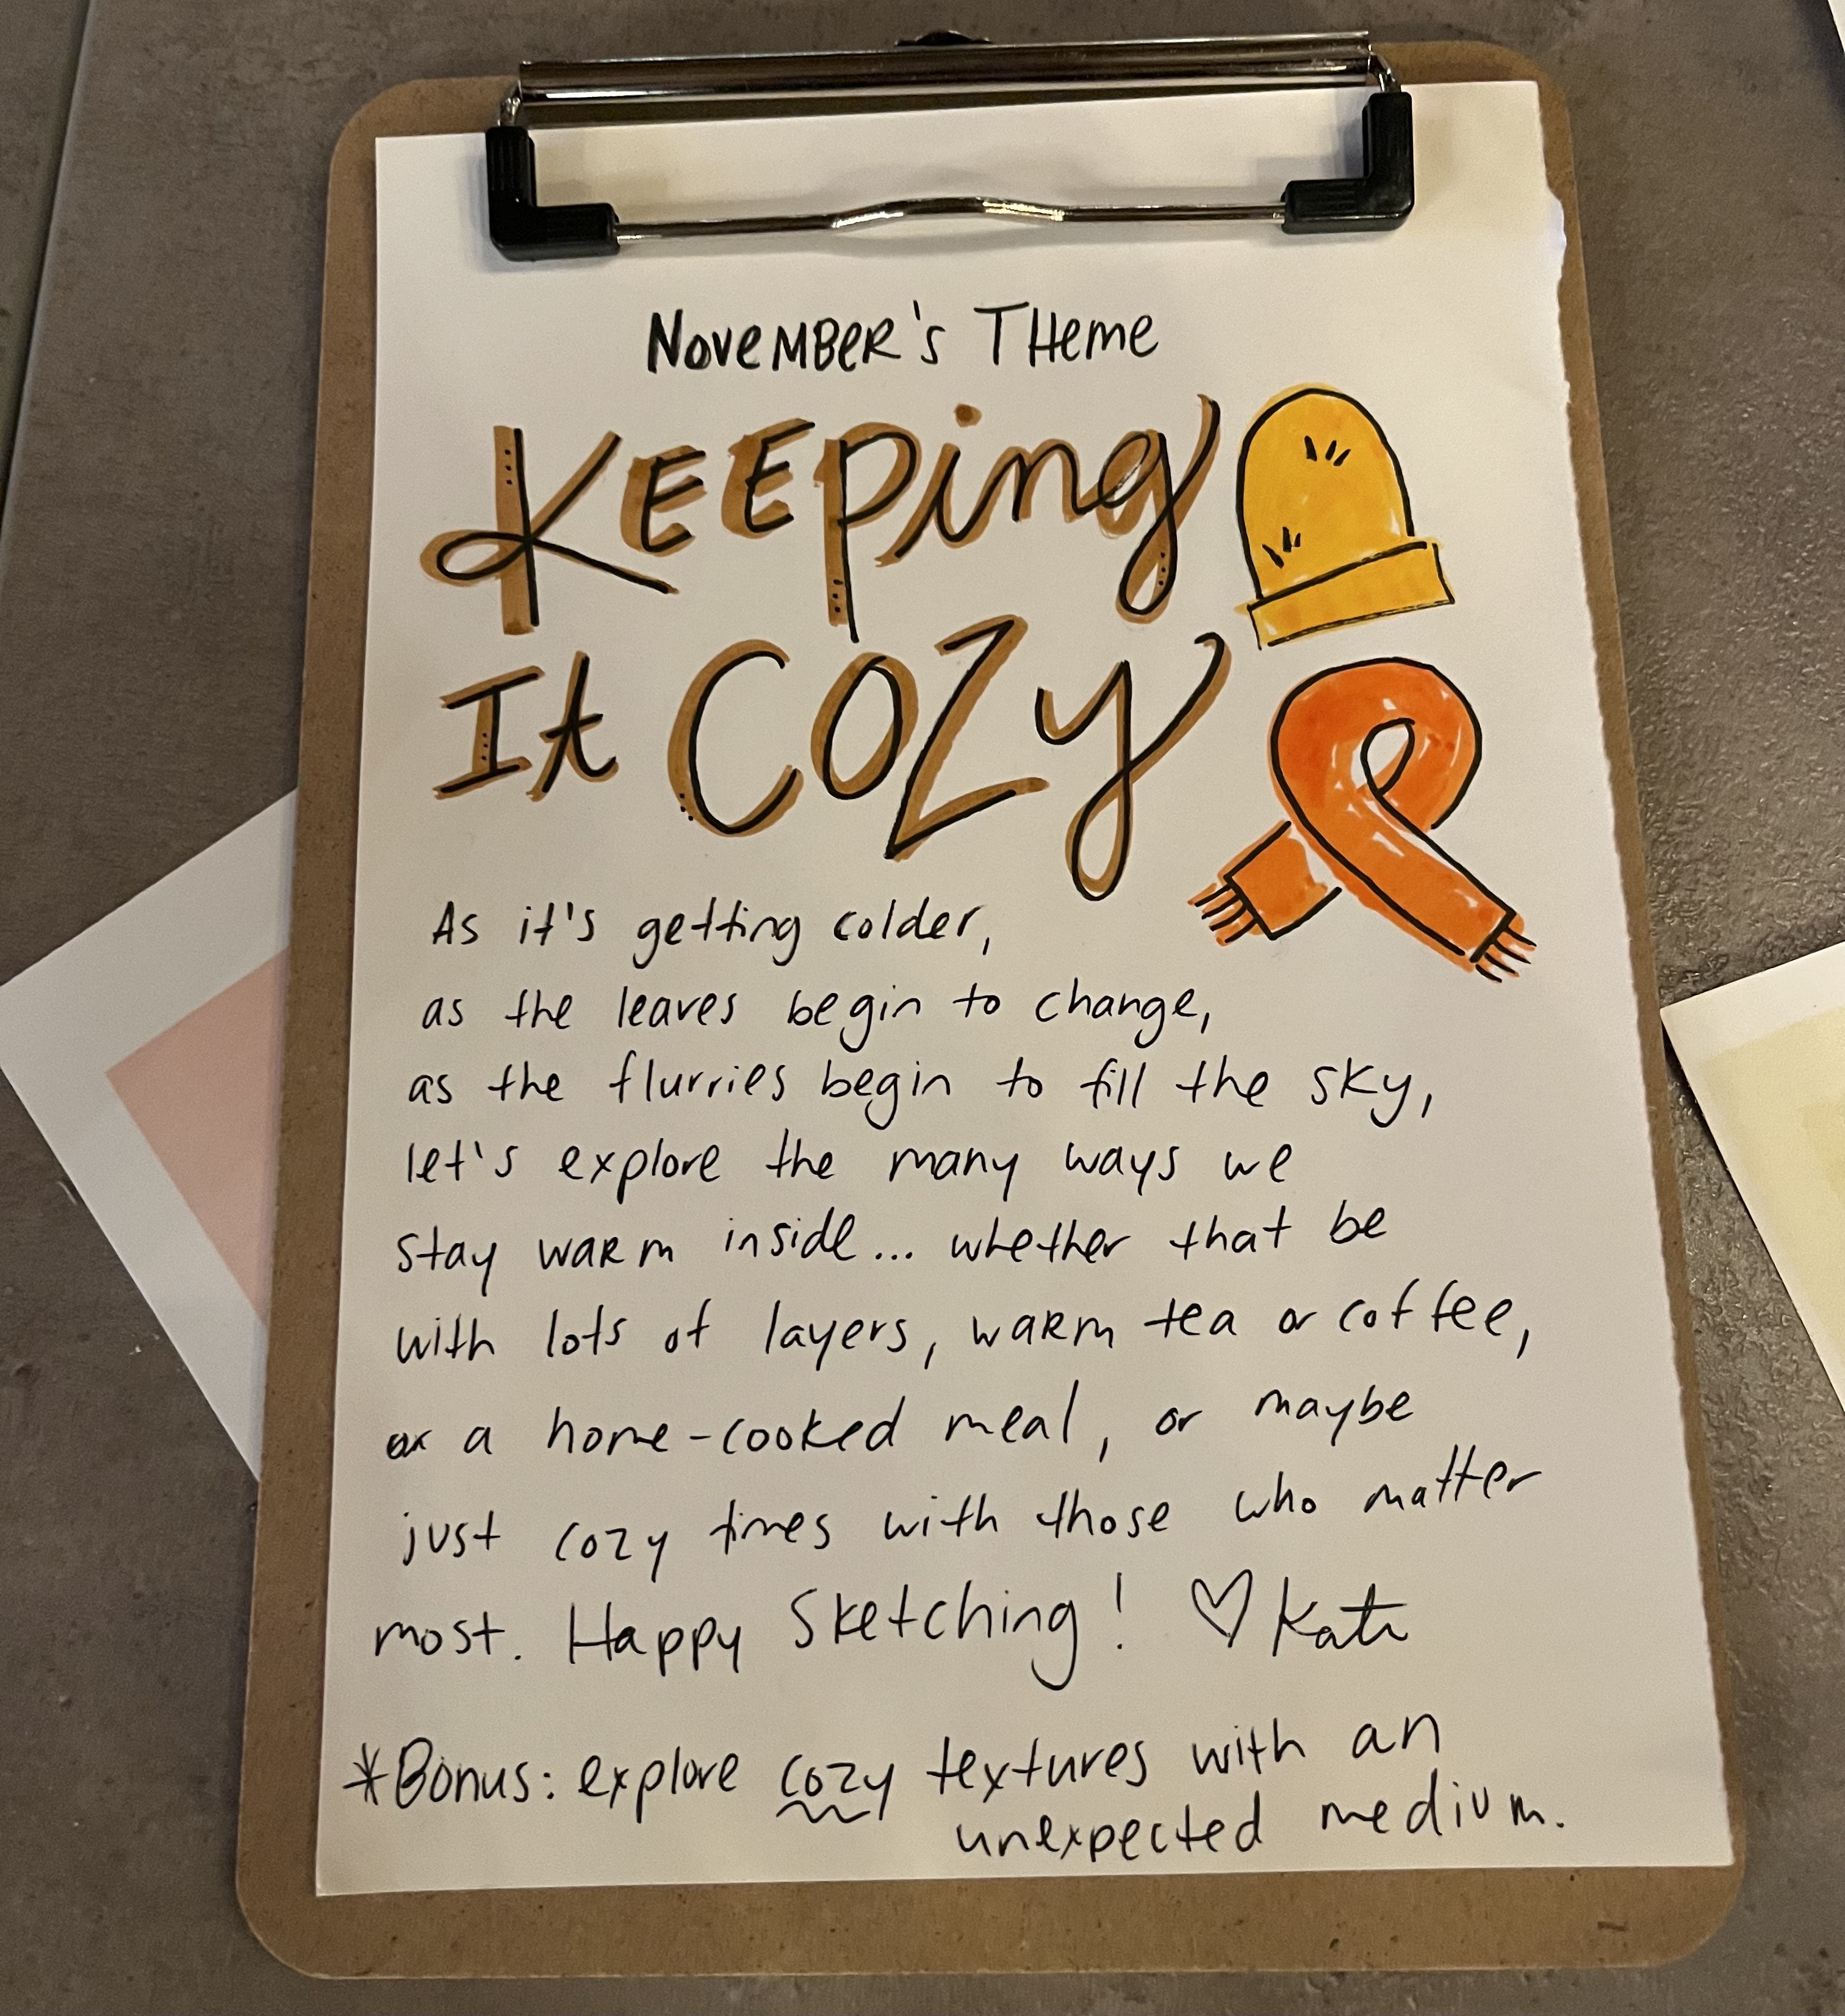 November's Theme
Keeping
It Cozy
As it's getting colder,
as the leaves begin to change,
as the flurries begin to fill the sky,
let's explore the many ways we
stay warm inside... whether that be
with lots of layers, warm tea or coffee,
or a home-cooked meal, or maybe
just cozy times with those who matter
most. Happy Sketching! ♡ Kati
*Bonus: explore cozy textures with an
unexpected medium.